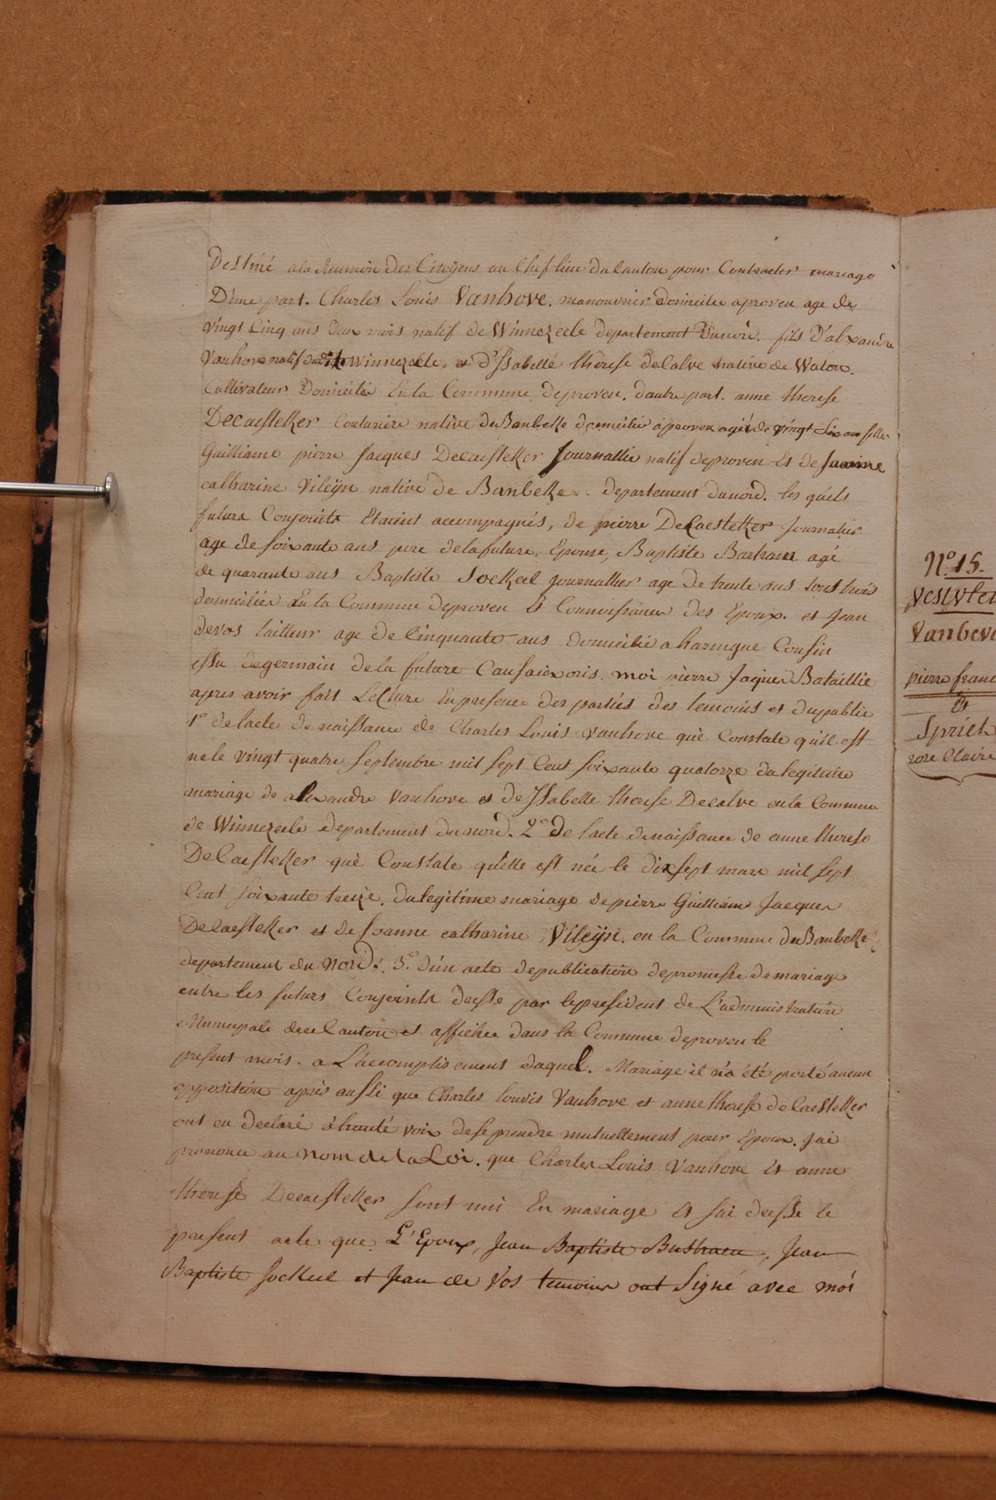 Destiné a la Reunion des Citoyens au Chef lieu du Canton pour Contracter mariage
D'une part. Charles Louis Vanhove. manouvrier domicilié a proven age de
Vingt Cinq ans deux mois natif de Winnezeele departement Dunord. fils d'alxandre
Vanhove natif dudit Winnezeele, et d'Isabelle therese deCalve native de Watou.
Cultivateur Domicilié En la Commune deproven. dautre part. anne therese
Decaesteker Couturiere native du Banbeke domiciliée aproven agée de vingt Six ans fille
Guilliame pierre Jacques Decaesteker Journallie natif deproven Et de Jeanne
catharine Vileÿn native de Banbeke. departement dunord. les quéls
futurs Conjoints Etaient accompagnés, de pierre DeCaesteker Journalier
age de soixante ans pere de la future Epouse, Baptiste Bartram agé
de quarante ans Baptiste Soekeel journallier age de trente ans tous trois
domiciliés En la Commune deproven Et Connoissance des Epoux. et Jean
devos tailleur age de Cinquante ans domicilié a haringue Cousin
issu degermain de la future moi pierre Jaques Bataillie
apres avoir fait Lecture En presence des parties des temoins et du publie
1º de lacte de naissance de Charles Louis Vanhove qué Constate qu'il est
ne le vingt quatre septembre mil sept Cent soixante quatorze du legitime
mariage de alexandre Vanhove et de Isabelle therese Decalve en la Commune
de Winnezeele departement du nord. 2º de lacte denaissance de anne therese
DeCaesteker qué Constate qu'elle est née le dix sept mars mil sept
Cent soixante treize. du legitime mariage de pierre Guilliame Jacques
DeCaesteker et de Joanne catharine Vileÿn. en la Commune du Banbeke
departement du Nord. 3º d'un acte depublication depromesse demariage
entre les futurs Conjoints dressé par le president de L'administration
Municipale de ce Canton et affichée dans la Commune deproven le
present mois. a L'accomplissement duquel. Mariage il n'a été porté aucune
opposition après aussi que Charles Louis Vanhove et anne therese deCaesteker
ont eu declaré àhauté voix de se prendre mutuellement pour Epoux. jai
prononcé au nom de la Loi. que Charles Louis Vanhove Et anne
therese Decaesteker sont uni En mariage Et jai dressé le
present acte que L'Epoux, Jean Baptiste , Jean
Baptiste Soekeel et Jean de Vos temoins ont Signé avec moi
Nº 15.
Vanbeve
pierre franc
Et
Spriet
rose Claire